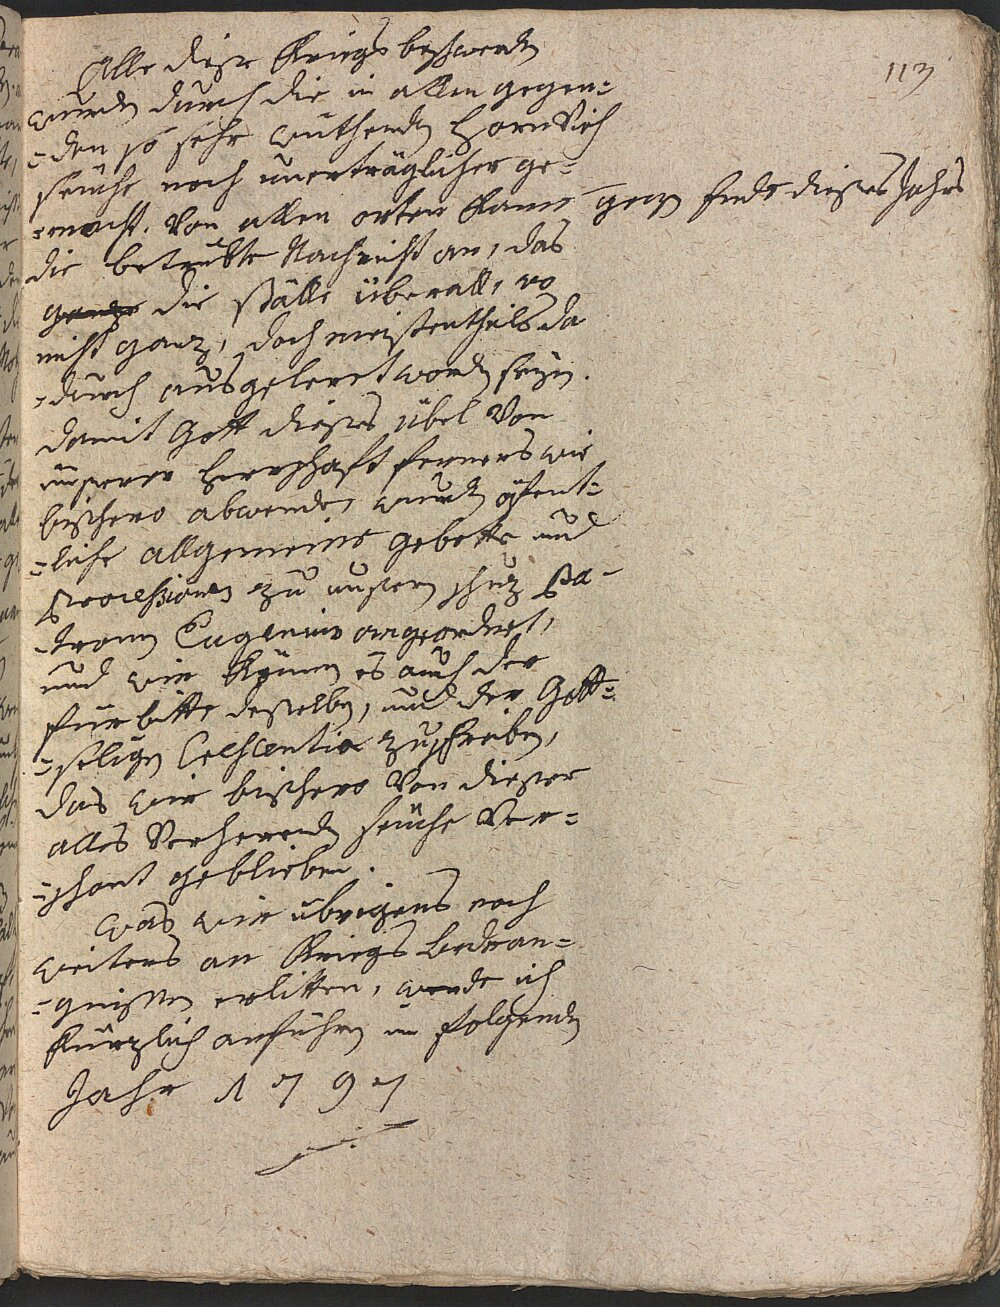 113
Alle diese Kriegs beschwerden
wurden durch die in allen gegen=
=den so sehr wüthenden Hornvieh
seüche noch unerträglicher ge=
=macht. Von allen orten kame gegen Ende dieses Jahrs
die betrübte Nachricht an, das
gantze die ställe überall, wo
nicht ganz, doch meistentheils da
=durch ausgeleret worden seyn.
damit Gott dieses übel von
unserer Herrschaft ferners wie
bishero abwende, wurden öfent=
=liche allgemeine gebette und
Processionen zu unserem schuz Pa=
=tronen Eugenius angeordnet,
und wir können es auch der
fürbitte desselben, und der Gott=
=seligen Crescentia zuschreiben,
das wir bishero von dieser
alles verherenden seüche ver=
=schont geblieben.
was wir übrigens noch
weiters an Kriegs bedran=
=gnissen erlitten, werde ich
kürzlich anführen im folgenden
Jahr 1797